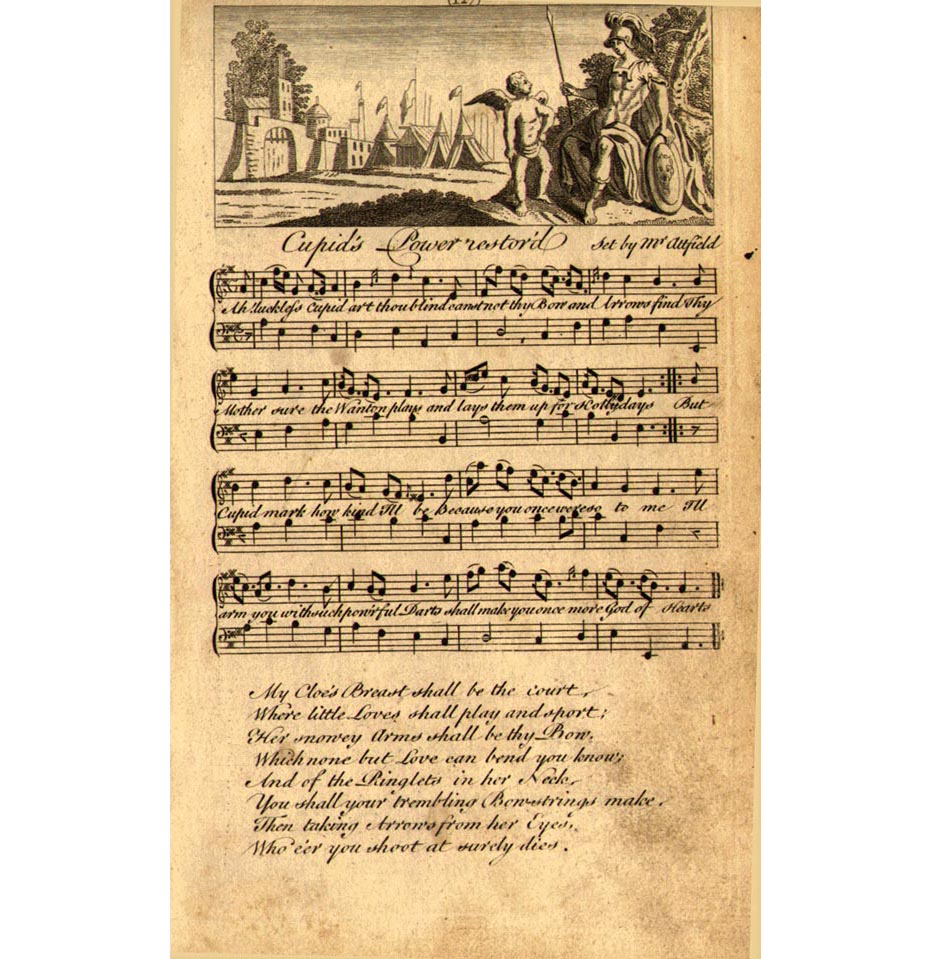 Cupid's Power restor'd Set by Mr Attfield
Ah! luckless Cupid art thou blind canst not thy Bow and Arrows find Thy
Mother sure the Wanton plays and lays them up for Hollydays But
Cupid mark how kind I'll be Because you once were so to me I'll
arm you with such pow'rful Darts shall make you once more God of Hearts
My Cloe's Breast shall be the court,
Where little Loves shall play and sport;
Her snowey Arms shall be thy Bow,
Which none but Love can bend you know;
And of the Ringlets in her Neck,
You shall your trembling Bowstrings make,
Then taking Arrows from her Eyes,
Who e'er you shoot at surely dies.